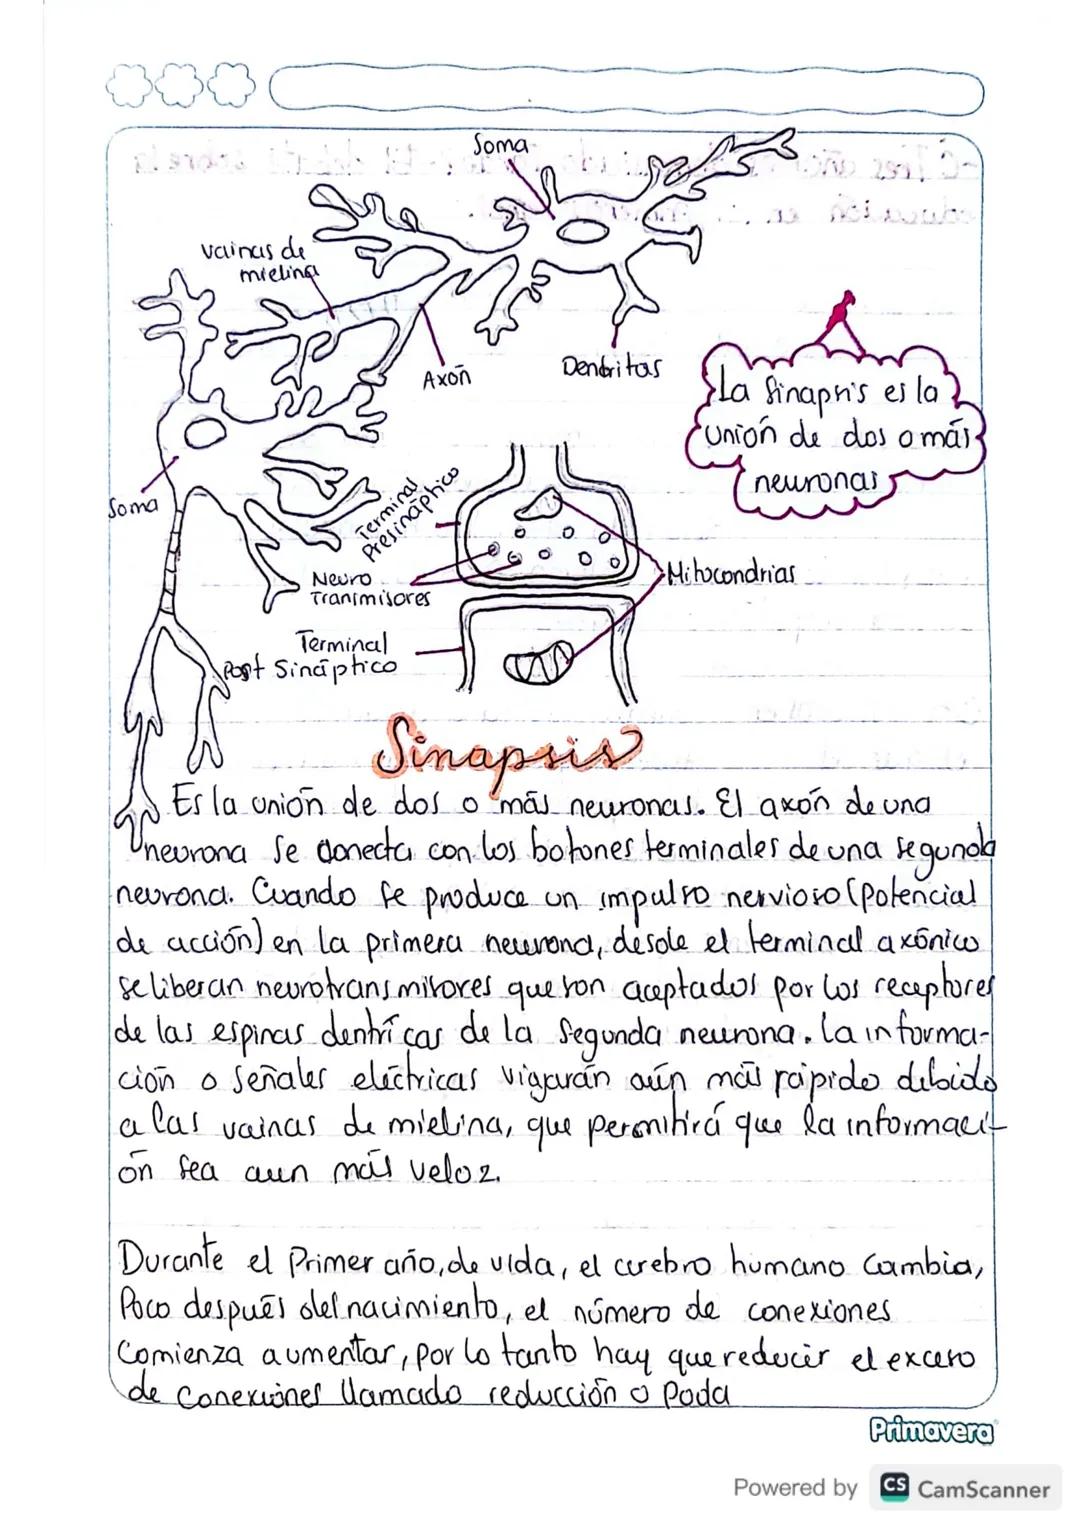 Soma
vainas de
mielina
Axón
Dendritas
La Sinapsis es la
unión de dos o más
neuronas
Soma
Terminal
Presináptico
Neuro
Transmisores
Mitocondrias
Terminal
Post Sináptico
Sinapsis
Es la unión de dos o más neuronas. El axón de una
neurona se conecta con los botones terminales de una segunda
neurona. Cuando se produce un impulso nervioso (potencial
de acción) en la primera neurona, desde el terminal axónico
se liberan neurotransmisores que son aceptados por los receptores
de las espinas dentrícas de la segunda neurona. La informa-
ción o señales eléctricas viajarán aún más rápido debido
a las vainas de mielina, que permitirá que la informaci-
ón sea aun más veloz.
Durante el Primer año, de vida, el cerebro humano Cambia,
Poco después del nacimiento, el número de conexiones
Comienza aumentar, por lo tanto hay que reducir el exceso
de Conexiones llamado reducción o Poda
Primavera
Powered by CS CamScanner